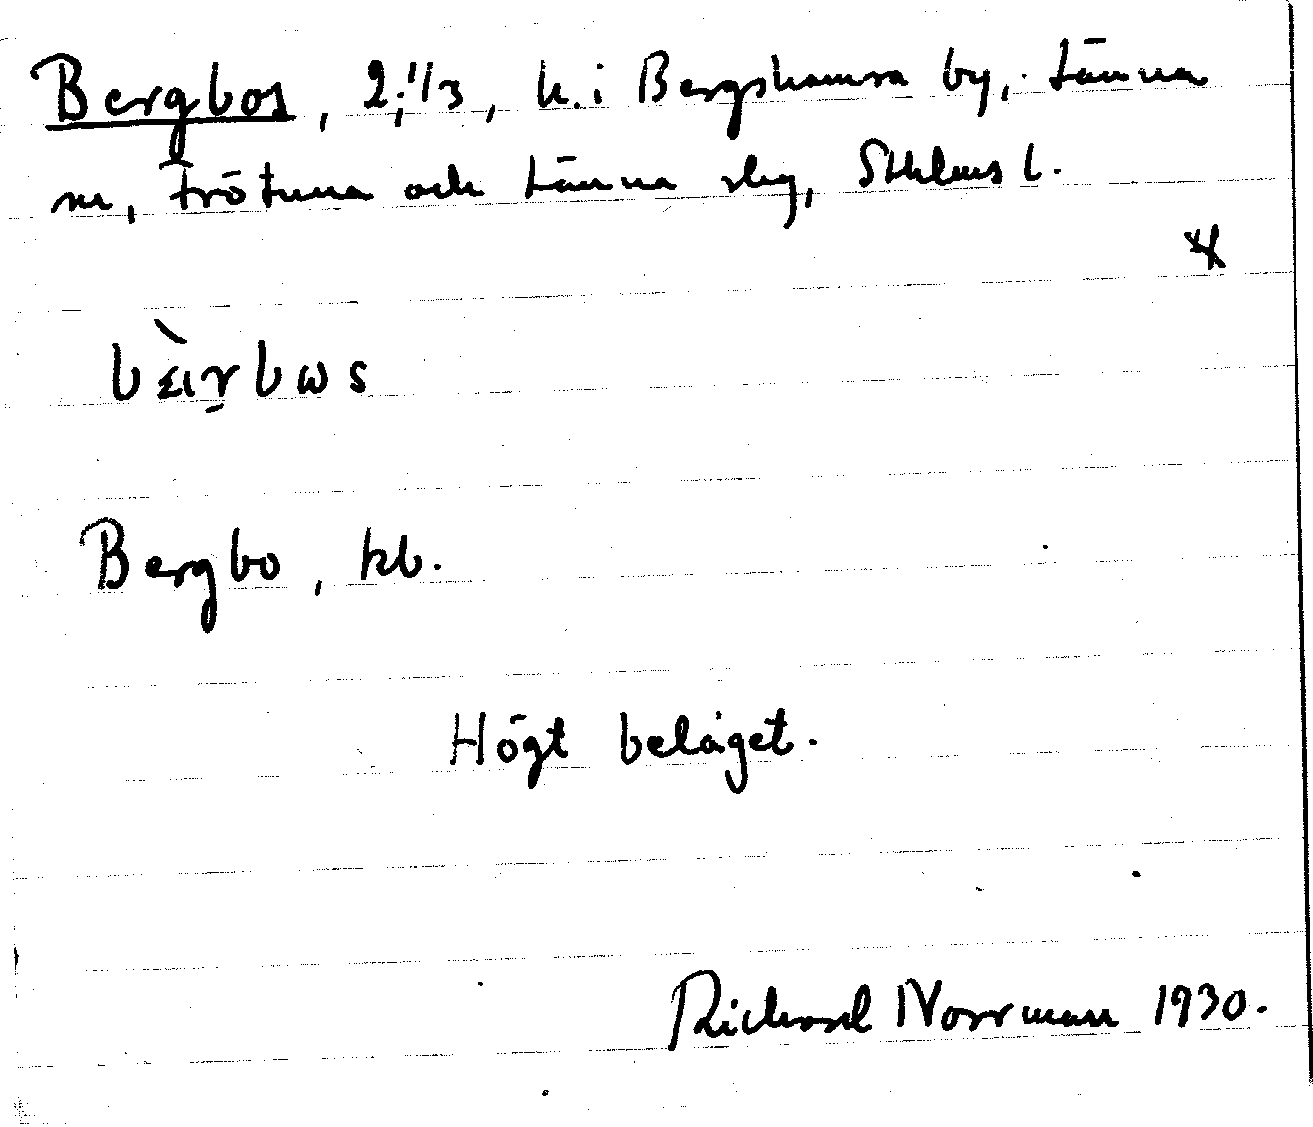 Bergbos, 2;1/3, h. i Bergshamra by, Länna
sn, Frötuna och Länna slg, Sthlms l.
bèırbωs
Bergbo, kb.
Högt beläget.
Richard Norrman 1930.